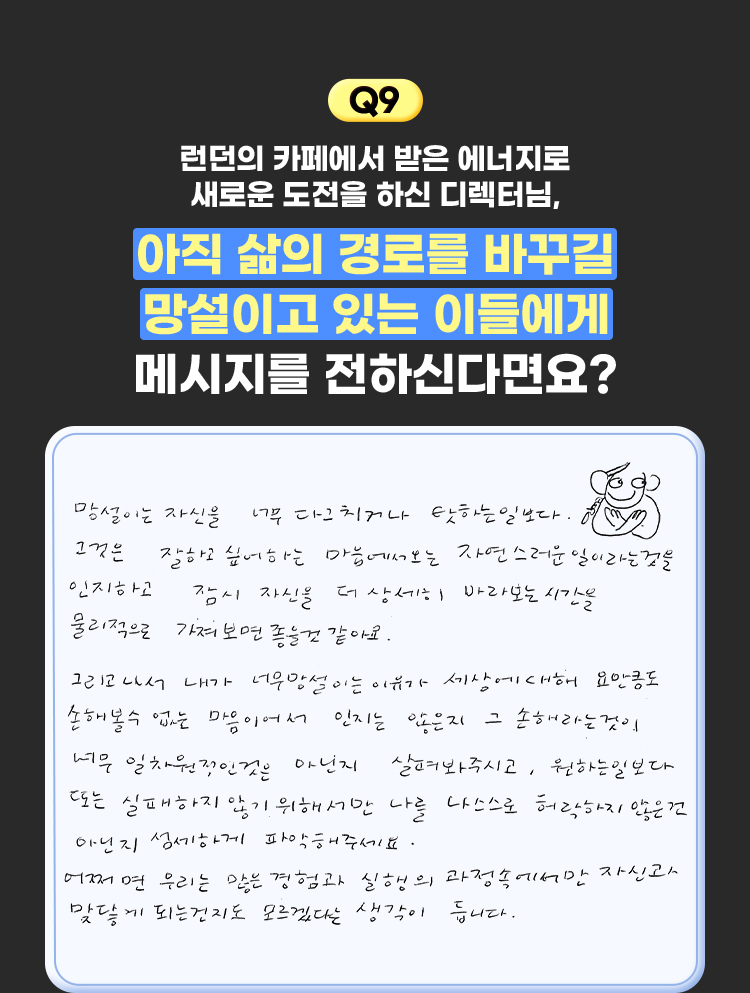 Q9
런던의 카페에서 받은 에너지로
새로운 도전을 하신 디렉터님,
아직 삶의 경로를 바꾸길
망설이고 있는 이들에게
메시지를 전하신다면요?
망설이는 자신을 너무 다그치거나 탓하는일보다.
그것은 잘하고 싶어하는 마음에서오는 자연스러운 일이라는것을
인지하고 잠시 자신을 더 상세히 바라보는 시간을
물리적으로 가져보면 좋을것 같아요.
그리고나서 내가 너무망설이는이유가 세상에대해 요만큼도
손해볼수 없는 마음이어서 인지는 않은지 그 손해라는것이
너무 일차원적인것은 아닌지 살펴봐주시고, 원하는일보다
또는 실패하지않기위해서만 나를 나스스로 허락하지않은건
아닌지 섬세하게 파악해주세요.
어쩌면 우리는 많은경험과 실행의 과정속에서만 자신과
맞닿게 되는건지도 모르겠다는 생각이 듭니다.